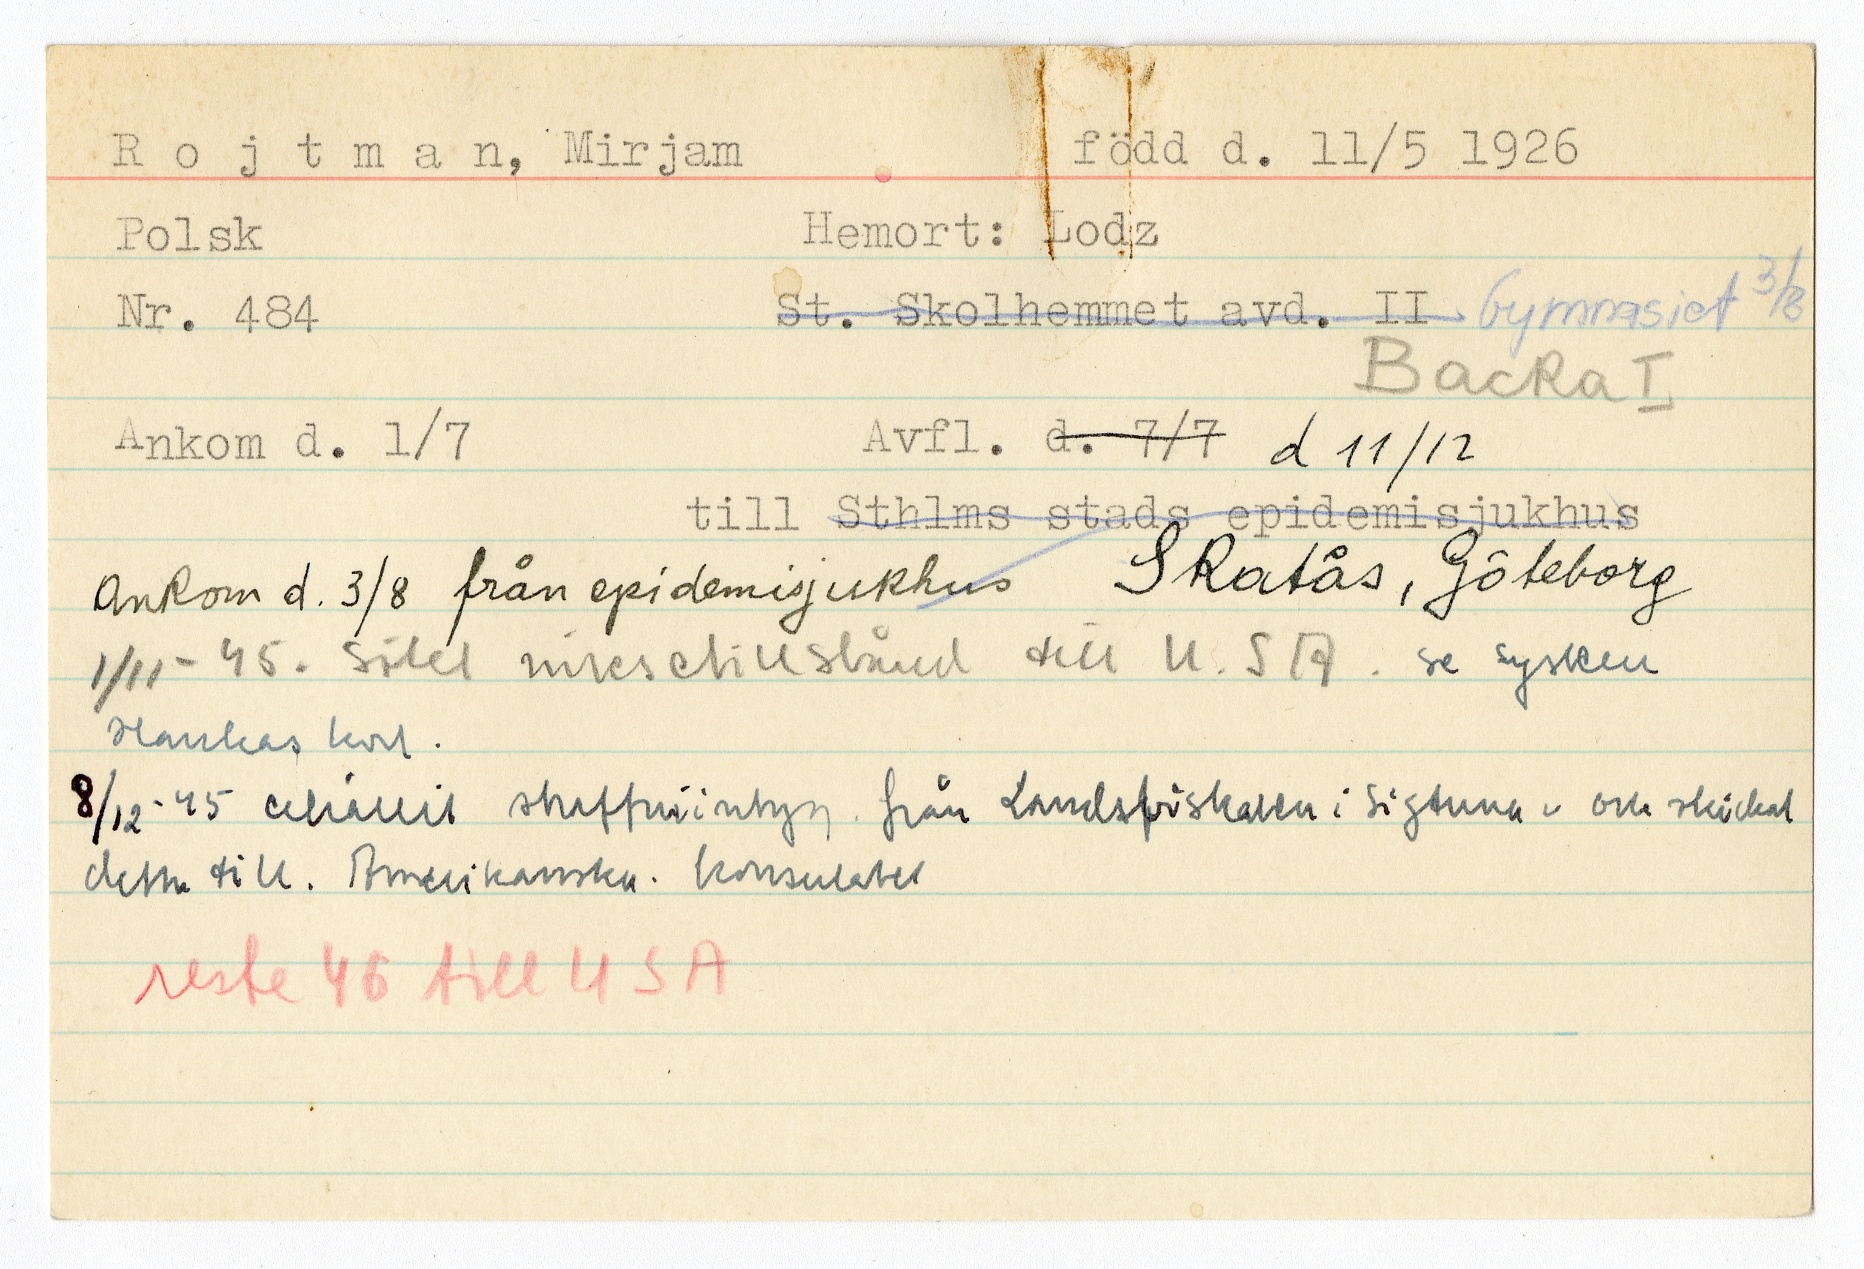 Rojtman, Mirjam född d. 11/5 1926
Polsk Hemort: Lodz
Nr. 484 St. Skolhemmet avd. II Gymnasiet 3/8
Backa I
Ankom d. 1/7 Avfl. d. 7/7 d 11/12
till Sthlms stads epidemisjukhus
Ankom d. 3/8 från epidemisjukhus Skatås, Göteborg
1/11-45. Sökt inresetillstånd till U.S.A. se systern
Hankas kort.
8/12-45 erhållit straffriintyg från Landsfiskalen i Sigtuna och skickat
detta till Amerikanska konsulatet
reste 46 till USA